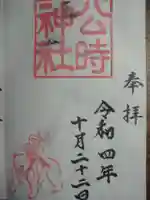 奉拝
公時
神社
令和四年
十月二十二日